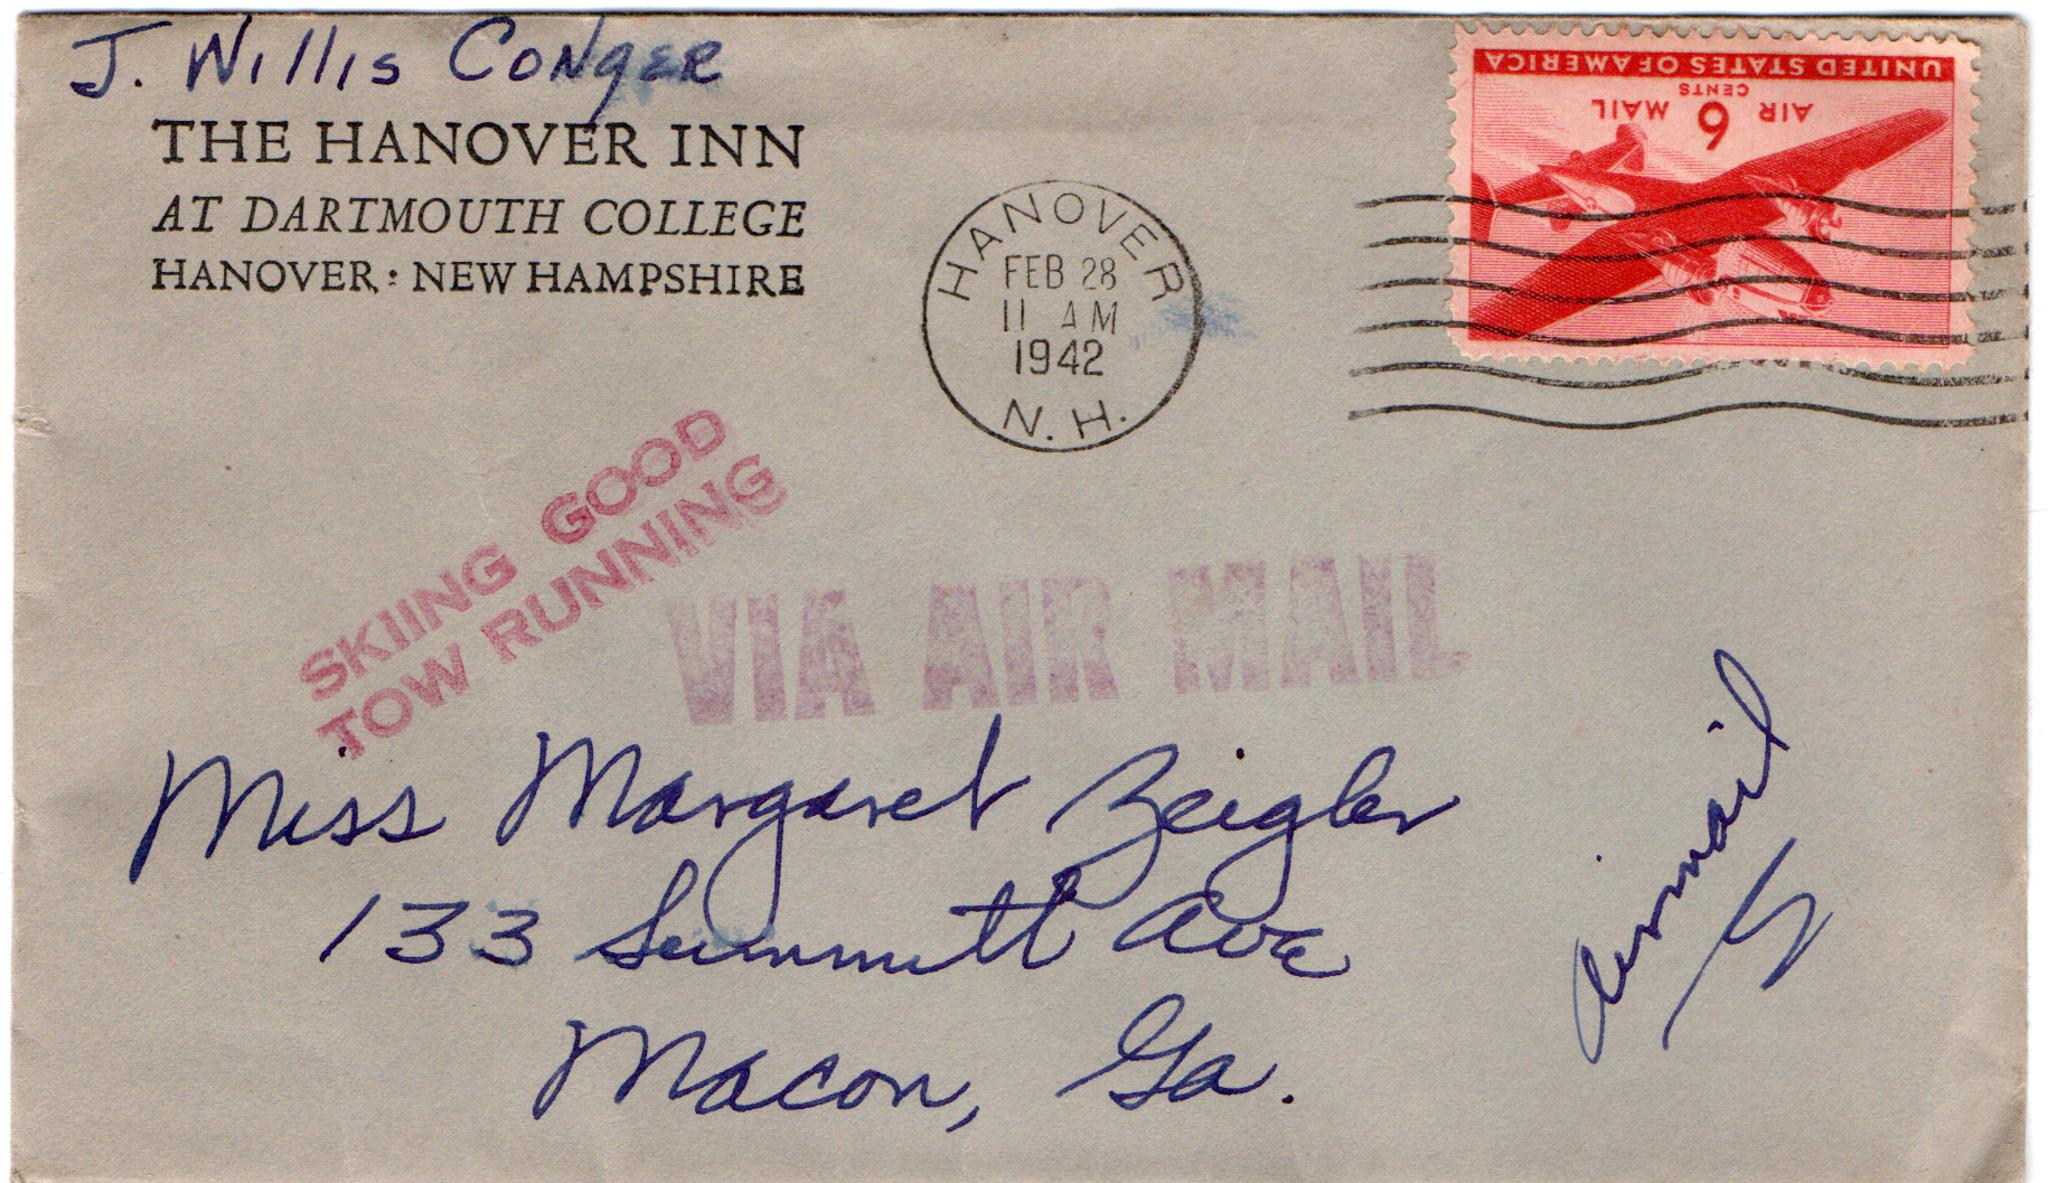 J. Willis Conger
THE HANOVER INN
AT DARTMOUTH COLLEGE
HANOVER : NEW HAMPSHIRE
HANOVER
FEB 28
11 AM
1942
N. H.
UNITED STATES OF AMERICA
CENTS
AIR 6 MAIL
SKIING GOOD
TOW RUNNING
VIA AIR MAIL
Miss Margaret Zeigler
133 Summitt Ave
Macon, Ga.
Airmail